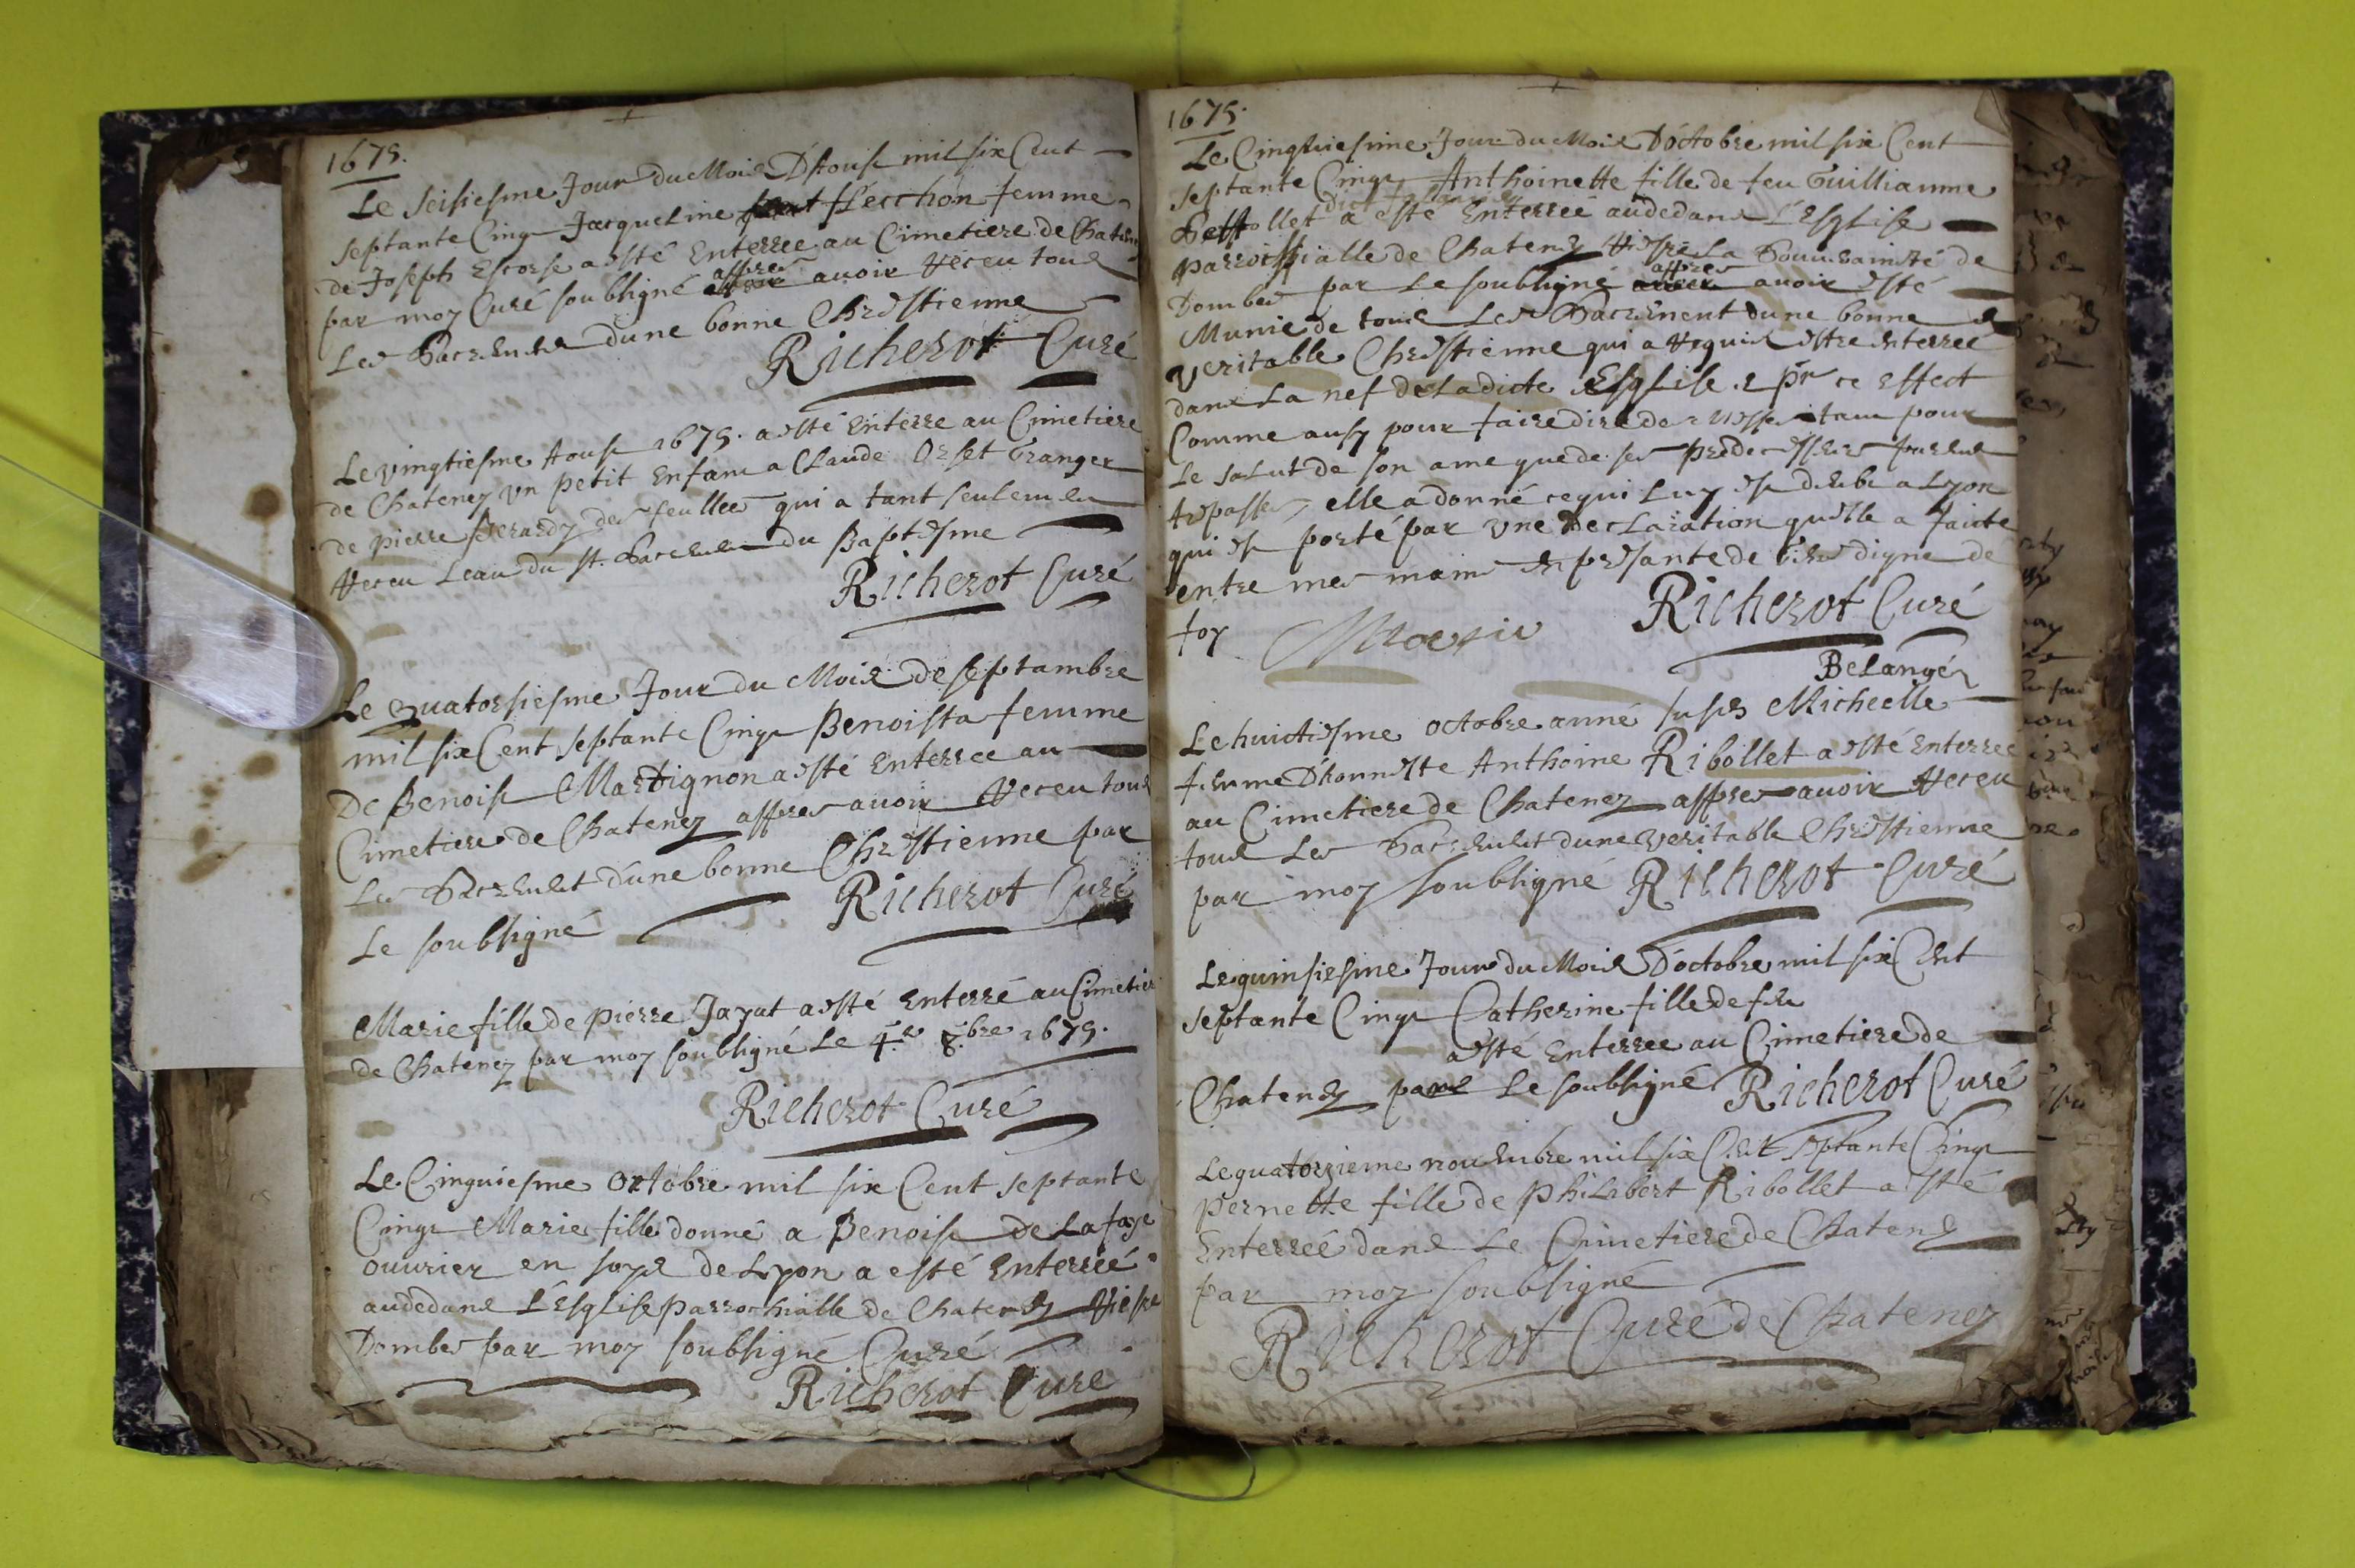 1675.
Le seisiesme Jour du Mois D'Aoust mil six Cent
septante Cinq Jacqueline flecchon femme
de Joseph Escorse a esté Enterree au Cimetiere de Chaten
par moy Curé soubsigné appres avoir Receu tous
Les Sacremens dune bonne Chrestienne
Richerot Curé
Le vingtiesme Aoust 1675. a esté Enterre au Cimetiere
de Chateney un petit Enfant a Claude Orset Granger
de pierre Berardy des feullees qui a tant seulement
Receu Leau du st. Sacrement du Baptesme
Richerot Curé
Le quatorsiesme Jour du Mois de septambre
mil six Cent septante Cinq Benoista femme
De Benoist Martignon a esté Enterree au
Cimetiere de Chateney appres avoir Receu tous
Les Sacrement d'une bonne Chrestienne par
Le soubsigné Richerot Curé
Marie fille de pierre Jayat a esté Enterré au Cimetier
de Chateney par moy soubsigné Le 4.e 8.bre 1675.
Richerot Curé
Le Cinquiesme Octobre mil six Cent septante
Cinq Marie fille donné a Benoist de La faye
ouvrier en soye de Lyon a esté Enterreé
audedans L'Esglise parrochialle de Chateney
Dombes par moy soubsigné Curé
Richerot Cure
1675.
Le Cinquiesme Jour du Mois D'octobre mil six Cent
septante Cinq Anthoinette fille de feu Guilliaume
a esté Enterreé audedans L'Esglise
parrochialle de Chateney La Souverainsté de
Dombes par Le soubsigné appres avoir esté
Munie de tous Les Sacrement dune bonne &
veritable Chrestienne qui a Requis estre Enterreé
dans La nef de Ladicte Esglise & pr ce Effect
Comme ausy pour faire dire des Messes tant pour
Le salut de son ame que de ses predecesseurs parens
trepasses, elle a donné ce qui Luy est deube a Lyon
qui est porté par une declaration quelle a faicte
entre mes mains en presante de Gens digne de
foy Richerot Curé
Belangé
Le huictiesme octobre anné susds Micheelle
femme D'honneste Anthoine Ribollet a esté Enterree
au Cimetiere de Chateney appres avoir Receu
tous Les Sacrement dune veritable Chrestienne
par moy soubsigné Richerot Curé
Le quinsiesme Jour du Mois D'octobre mil six Cent
septante Cinq Catherine fille de feu
a esté Enterree au Cimetiere de
Chateney par Le soubsigné Richerot Curé
Le quatorzieme novembre mil six Cent septante Cinq
pernette fille de philibert Ribollet a esté
Enterreé dans Le Cimetiere de Chateney
par moy soubsigné
Richerot Curé de Chateney